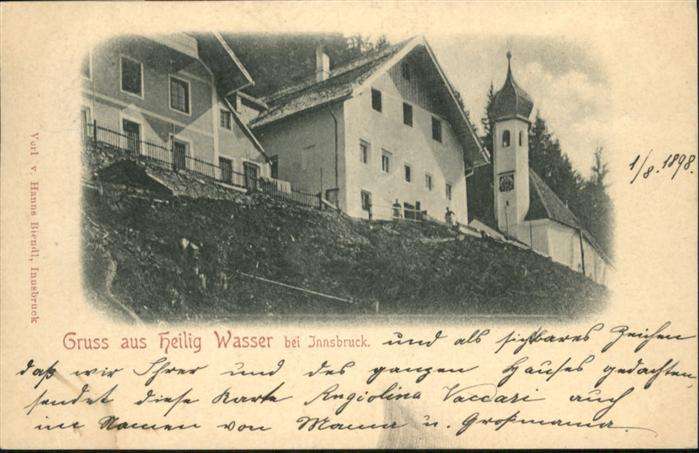 1/8. 1898.
Verl. v. Hanns Biendl, Innsbruck
Gruss aus Heilig Wasser bei Innsbruck. und als sichtbares Zeichen
daß wir Ihrer und des ganzen Hauses gedachten
sendet diese Karte Angiolina Vaccari auch
im Namen von Mama u. Großmama.